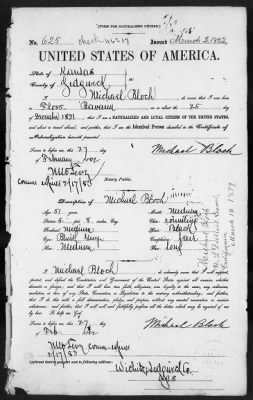 [FORM FOR NATURALIZED CITIZEN.]
No. 625 Issued March 2, 1882
UNITED STATES OF AMERICA.
State of Kansas
County of Sedgwick
I, Michael Bloch do swear that I was born
in Bavaria on or about the 25 day
of 1831, that I am a NATURALIZED AND LOYAL CITIZEN OF THE UNITED STATES
and about to travel abroad, and further, that I am the Identical Person described in the Certificate of
Naturalization herewith presented.
Sworn to before me this 27
day of February 1882
Michael Bloch
M W Levy
Notary Public.
Description of Michael Bloch
Age: 51 years.
Mouth: Medium
Stature: 5 feet 8 inches, Eng.
Forehead: medium
Hair: Black
Eyes:
Complexion: Fair
Nose: Medium
Face: Long
I, Michael Bloch, do solemnly swear that I will support,
protect, and defend the Constitution and Government of the United States against all enemies, whether
domestic or foreign; and that I will bear true faith, allegiance, and loyalty to the same, any ordinance,
resolution, or law of any State, Convention, or Legislature to the contrary notwithstanding; and further,
that I do this with a full determination, pledge, and purpose, without any mental reservation or evasion
whatsoever; and further, that I will well and faithfully perform all the duties which may be required of me
by law. So help me God.
Sworn to before me this 27
day of Feb 1882
Michael Bloch
M W Levy
2/17/83
Applicant desires passport sent to following address:
Wichita, Sedgwick Co.